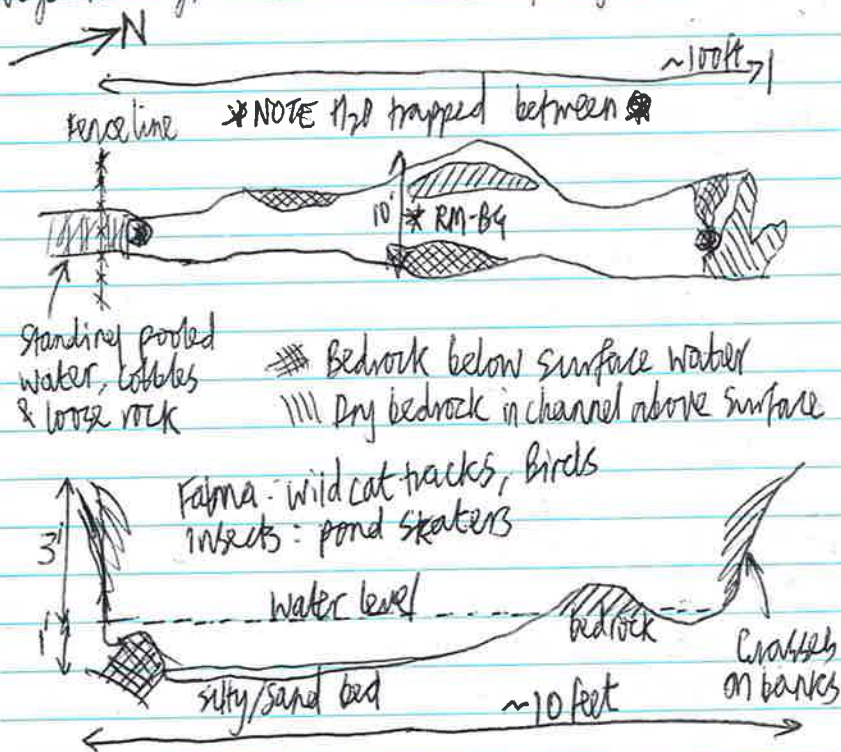 N
~100ft
Fence line
*NOTE H2O trapped between
10'
* RM-BG
Standing pooled
water, cobbles
& loose rock
Bedrock below surface water
Dry bedrock in channel above surface
Fauna: wild cat tracks, Birds
Insects: pond skaters
3'
Water level
1'
bedrock
Grasses
on banks
silty/sand bed
~10 feet